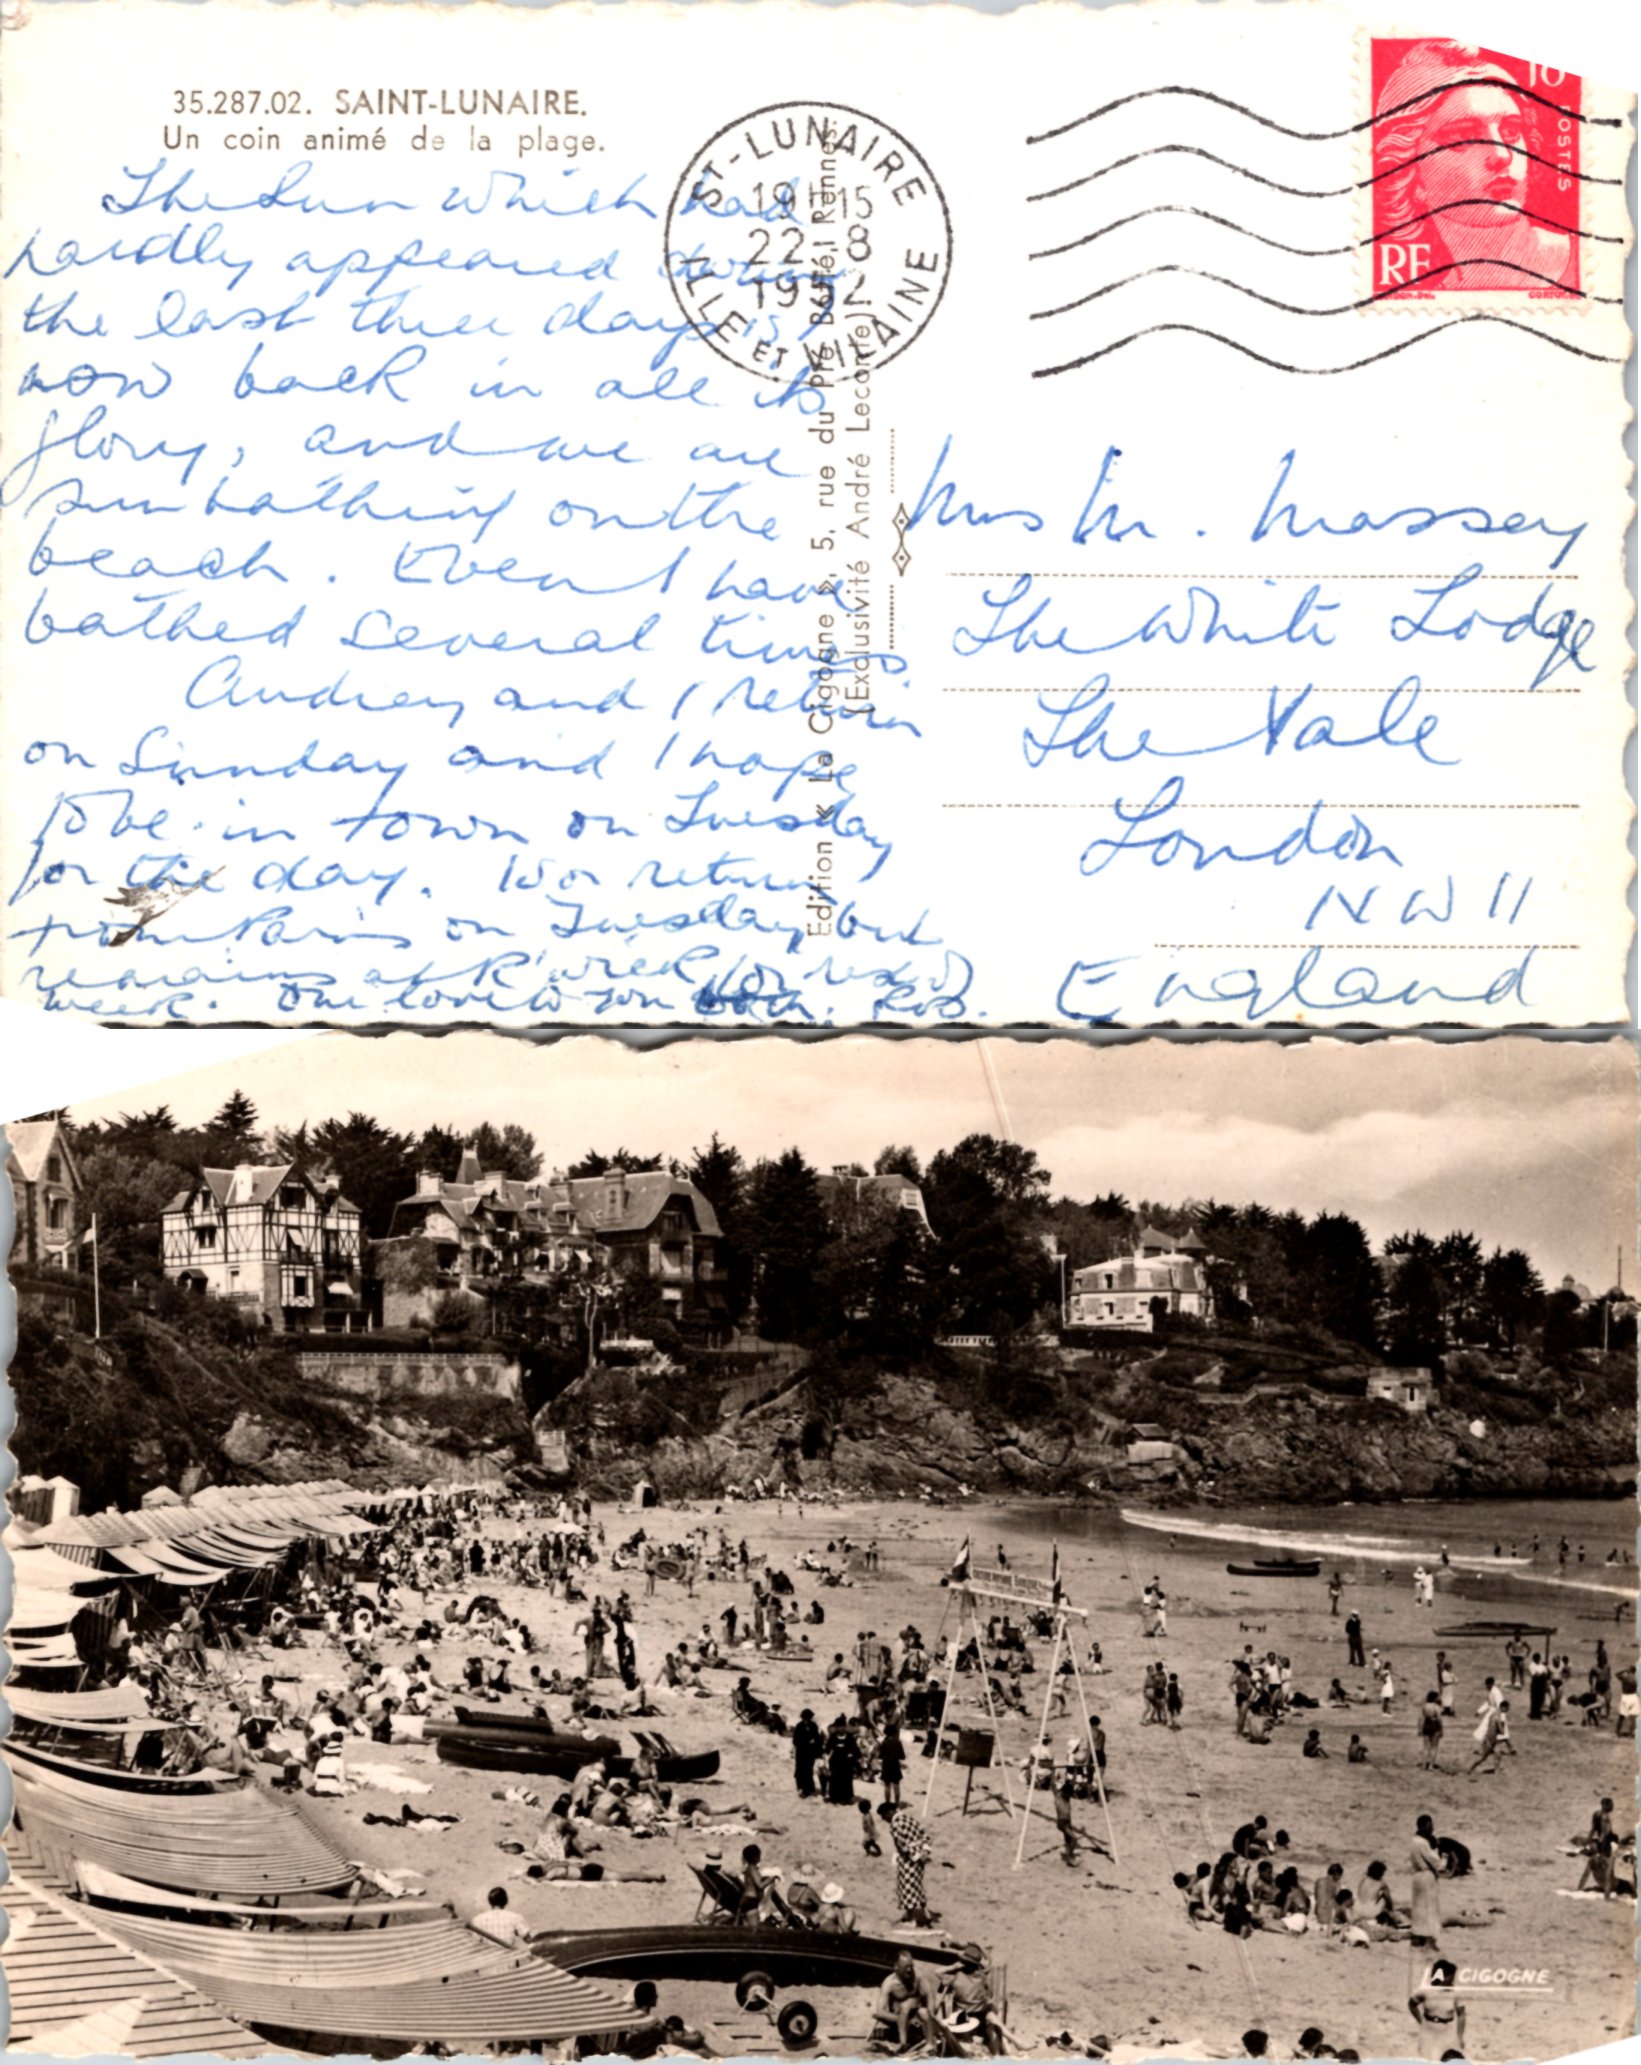 35.287.02. SAINT-LUNAIRE.
Un coin animé de la plage.
The Sun which had
hardly appeared during
the last three days is
now back in all its
glory, and we are
sunbathing on the
beach. Even I have
bathed several times.
Audrey and I return
on Sunday and I hope
to be in town on Tuesday
for the day. return
from Paris on Tuesday, but
remains at for rest of
week. Our love to you both. Rob.
ST-LUNAIRE
19H15
22-8
1952
ILLE ET VILAINE
Edition « La Cigogne », 5, rue du Pré Botté, Rennes
(Exclusivité André Leconte)
10
POSTES
RF
Mrs M. Massey
The White Lodge
The Vale
London
NW11
England
LA CIGOGNE